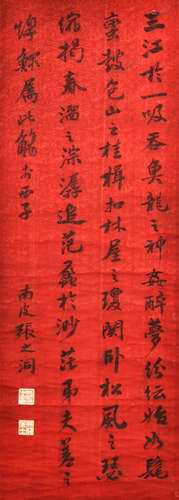 三江於一吸吞魚龍之神姦醉夢紛紜始如髦
蠻鼓包山之桂楫扣林屋之瓊關卧松風之瑟
縮揭春溜之淙潺追范蠡於渺茫吊夫差之
惸鰥屬此觴於西子
南皮張之洞